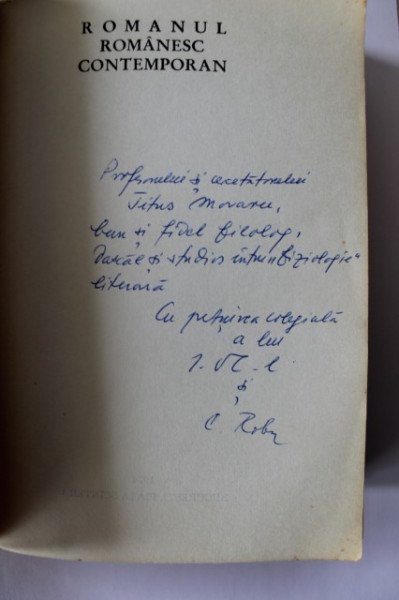 ROMANUL
ROMÂNESC
CONTEMPORAN
Profesorului și cercetătorului
Titus Moraru,
bun și fidel filolog,
Dascăl și studios întru "fiziologie"
literară
Cu prețuirea colegială
a lui
și
C. Robu